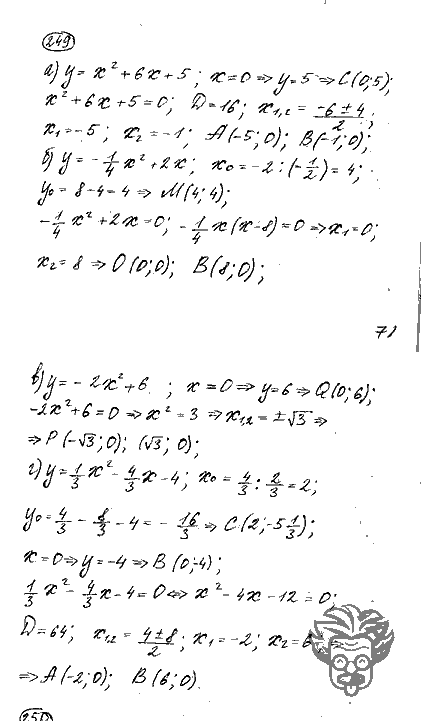 249
а) y = x² + 6x + 5 ; x = 0 ⇒ y = 5 ⇒ C(0; 5);
x² + 6x + 5 = 0; D = 16; x₁,₂ = (-6 ± 4)/2 ;
x₁ = -5; x₂ = -1; A(-5; 0); B(-1; 0);
б) y = -1/4 x² + 2x; x₀ = -2 : (-1/2) = 4;
y₀ = 8 - 4 = 4 ⇒ M(4; 4);
-1/4 x² + 2x = 0; -1/4 x(x - 8) = 0 ⇒ x₁ = 0;
x₂ = 8 ⇒ O(0; 0); B(8; 0);
в) y = -2x² + 6 ; x = 0 ⇒ y = 6 ⇒ Q(0; 6);
-2x² + 6 = 0 ⇒ x² = 3 ⇒ x₁,₂ = ±√3 ⇒
⇒ P(-√3; 0); (√3; 0);
г) y = 1/3 x² - 4/3 x - 4; x₀ = 4/3 : 2/3 = 2;
y₀ = 4/3 - 8/3 - 4 = -16/3 ⇒ C(2; -5 1/3);
x = 0 ⇒ y = -4 ⇒ B(0; -4);
1/3 x² - 4/3 x - 4 = 0 ⇔ x² - 4x - 12 = 0;
D = 64; x₁,₂ = (4 ± 8)/2 ; x₁ = -2; x₂ = 6
⇒ A(-2; 0) B(6; 0).
250